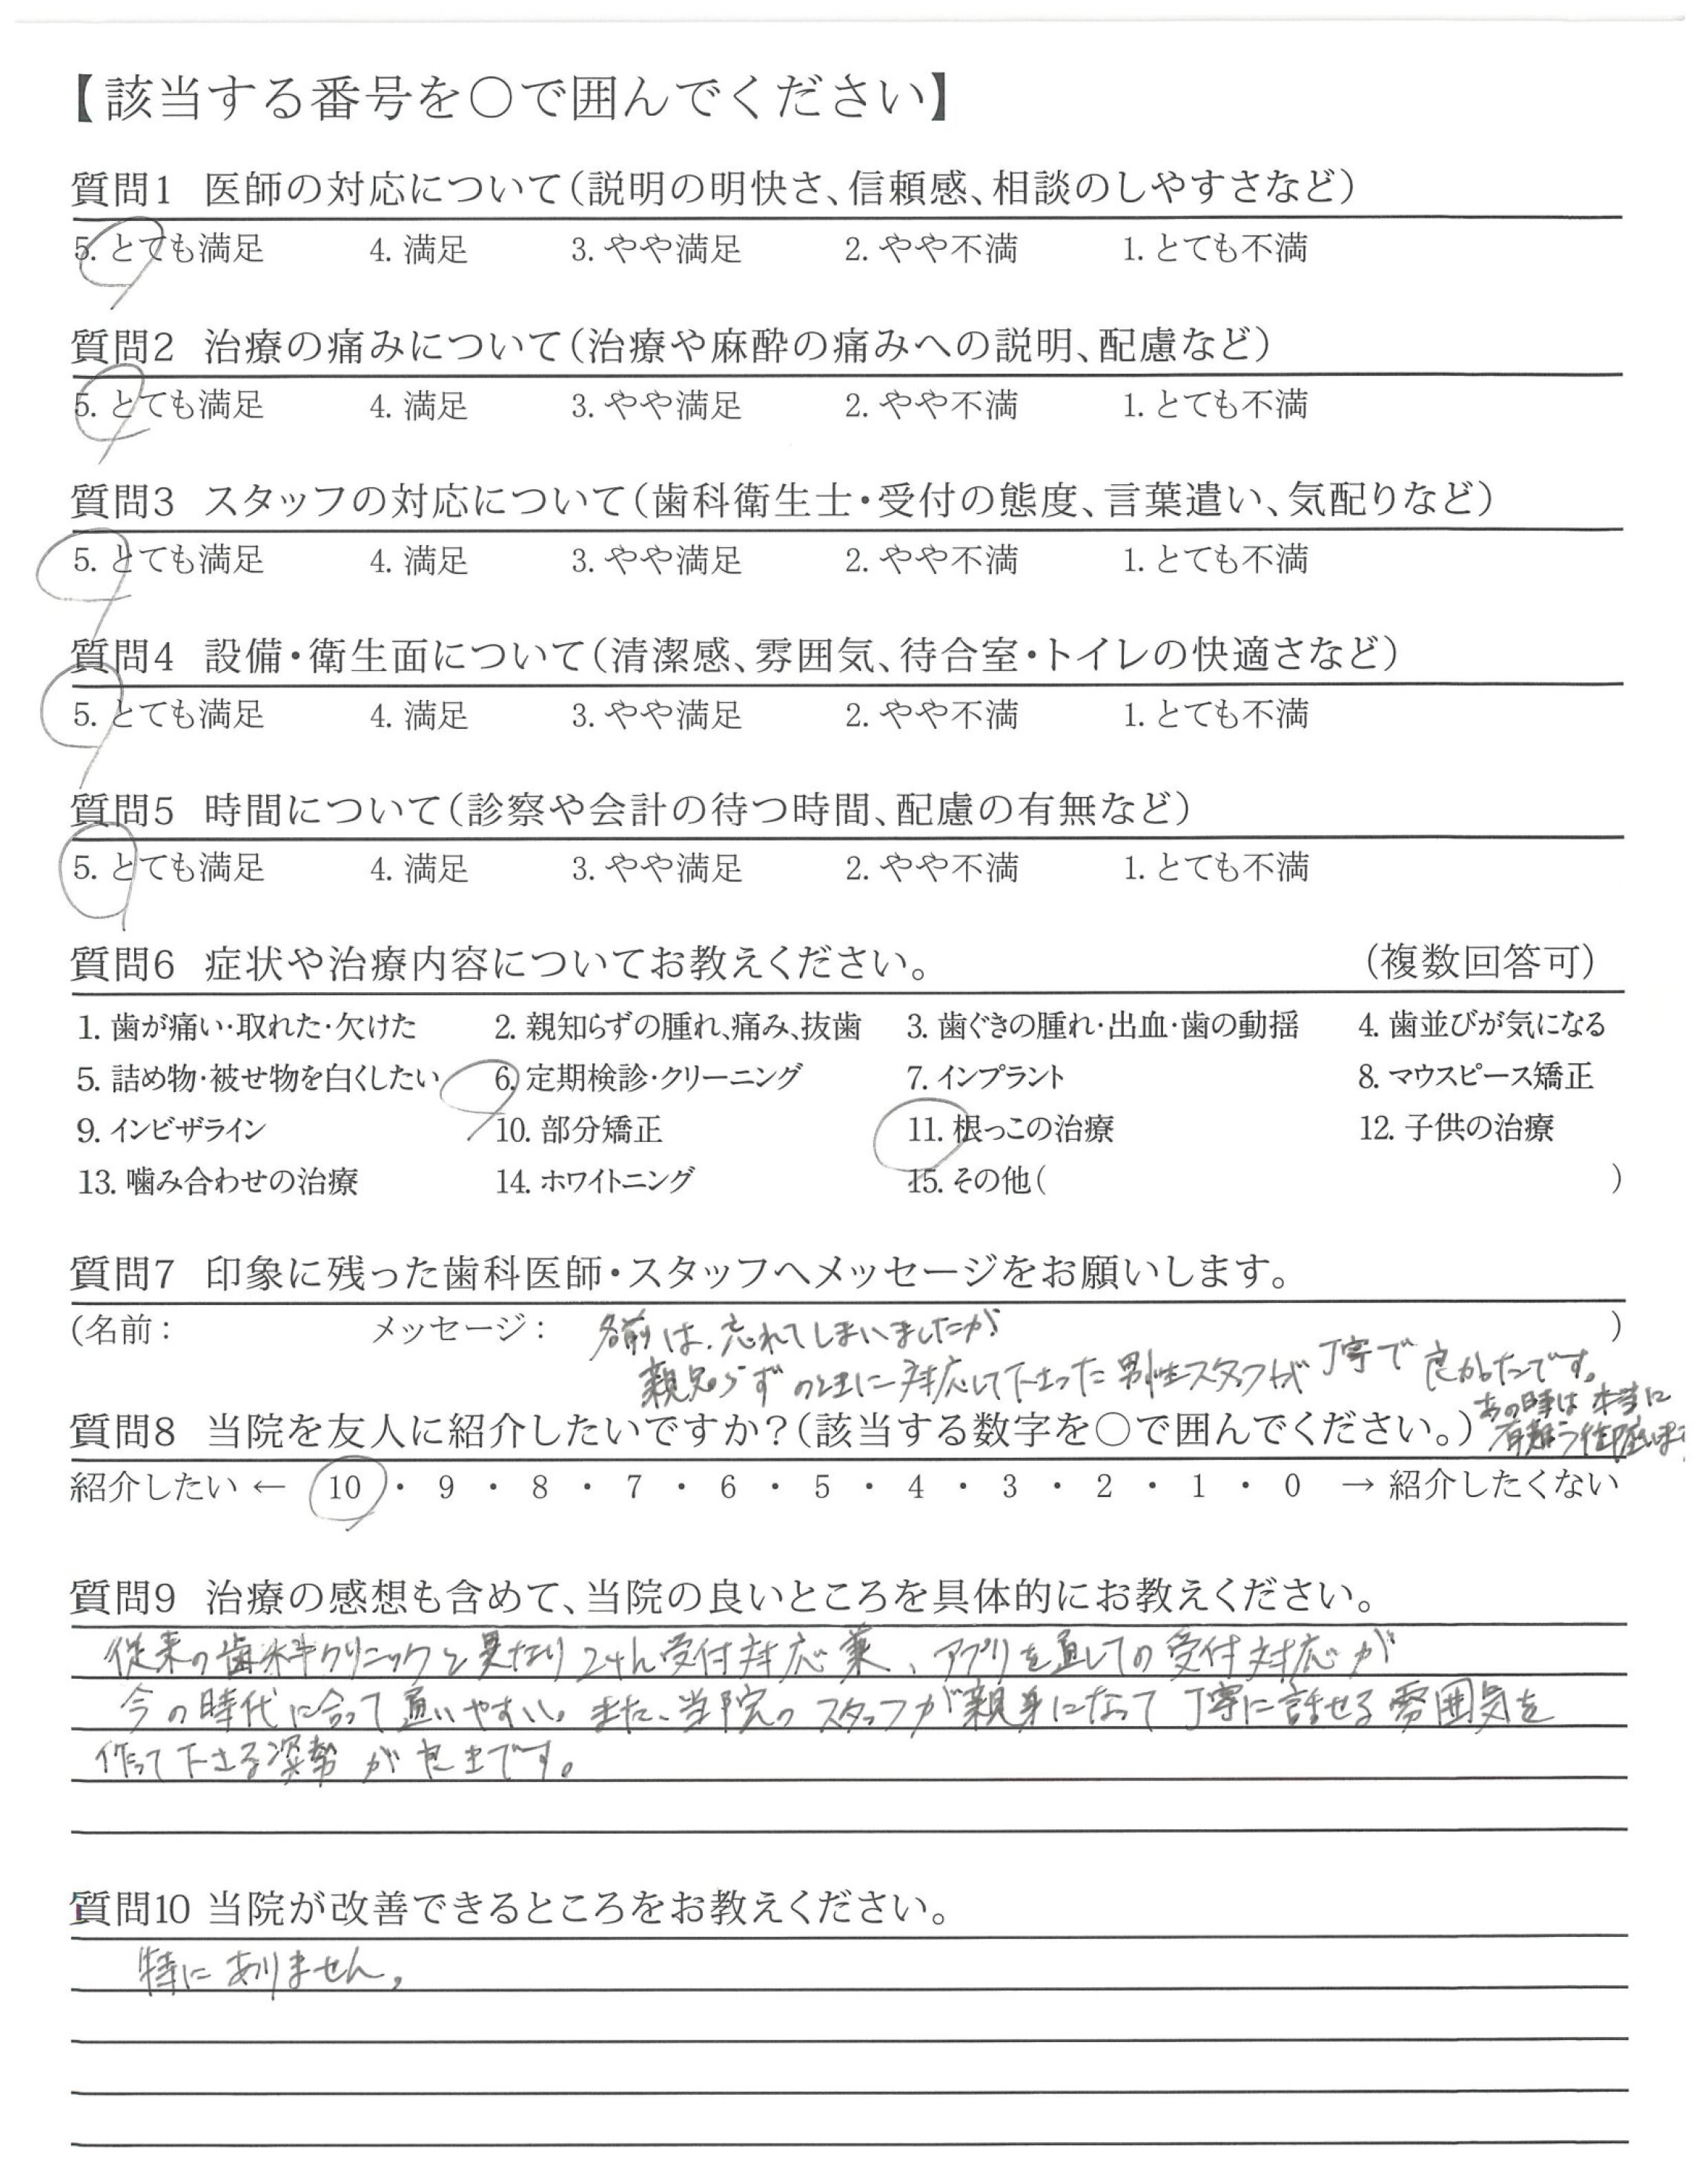 【該当する番号を○で囲んでください】
質問1 医師の対応について(説明の明快さ、信頼感、相談のしやすさなど)
5. とても満足 4. 満足 3. やや満足 2. やや不満 1. とても不満
質問2 治療の痛みについて(治療や麻酔の痛みへの説明、配慮など)
5. とても満足 4. 満足 3. やや満足 2. やや不満 1. とても不満
質問3 スタッフの対応について(歯科衛生士・受付の態度、言葉遣い、気配りなど)
5. とても満足 4. 満足 3. やや満足 2. やや不満 1. とても不満
質問4 設備・衛生面について(清潔感、雰囲気、待合室・トイレの快適さなど)
5. とても満足 4. 満足 3. やや満足 2. やや不満 1. とても不満
質問5 時間について(診察や会計の待つ時間、配慮の有無など)
5. とても満足 4. 満足 3. やや満足 2. やや不満 1. とても不満
質問6 症状や治療内容についてお教えください。 (複数回答可)
1. 歯が痛い・取れた・欠けた 2. 親知らずの腫れ、痛み、抜歯 3. 歯ぐきの腫れ・出血・歯の動揺 4. 歯並びが気になる
5. 詰め物・被せ物を白くしたい 6. 定期検診・クリーニング 7. インプラント 8. マウスピース矯正
9. インビザライン 10. 部分矯正 11. 根っこの治療 12. 子供の治療
13. 噛み合わせの治療 14. ホワイトニング 15. その他( )
質問7 印象に残った歯科医師・スタッフへメッセージをお願いします。
(名前: メッセージ: 名前は、忘れてしまいましたが )
親知らずの時に対応して下さった男性スタッフが丁寧で良かったです。
あの時は本当に
有難う御座います
質問8 当院を友人に紹介したいですか?(該当する数字を○で囲んでください。)
紹介したい ← 10 ・ 9 ・ 8 ・ 7 ・ 6 ・ 5 ・ 4 ・ 3 ・ 2 ・ 1 ・ 0 → 紹介したくない
質問9 治療の感想も含めて、当院の良いところを具体的にお教えください。
従来の歯科クリニックと異なり24h受付対応、アプリを通しての受付対応が
今の時代に合って通いやすい。また、当院のスタッフが親身になって丁寧に話せる雰囲気を
作って下さる姿勢がです。
質問10 当院が改善できるところをお教えください。
特にありません。